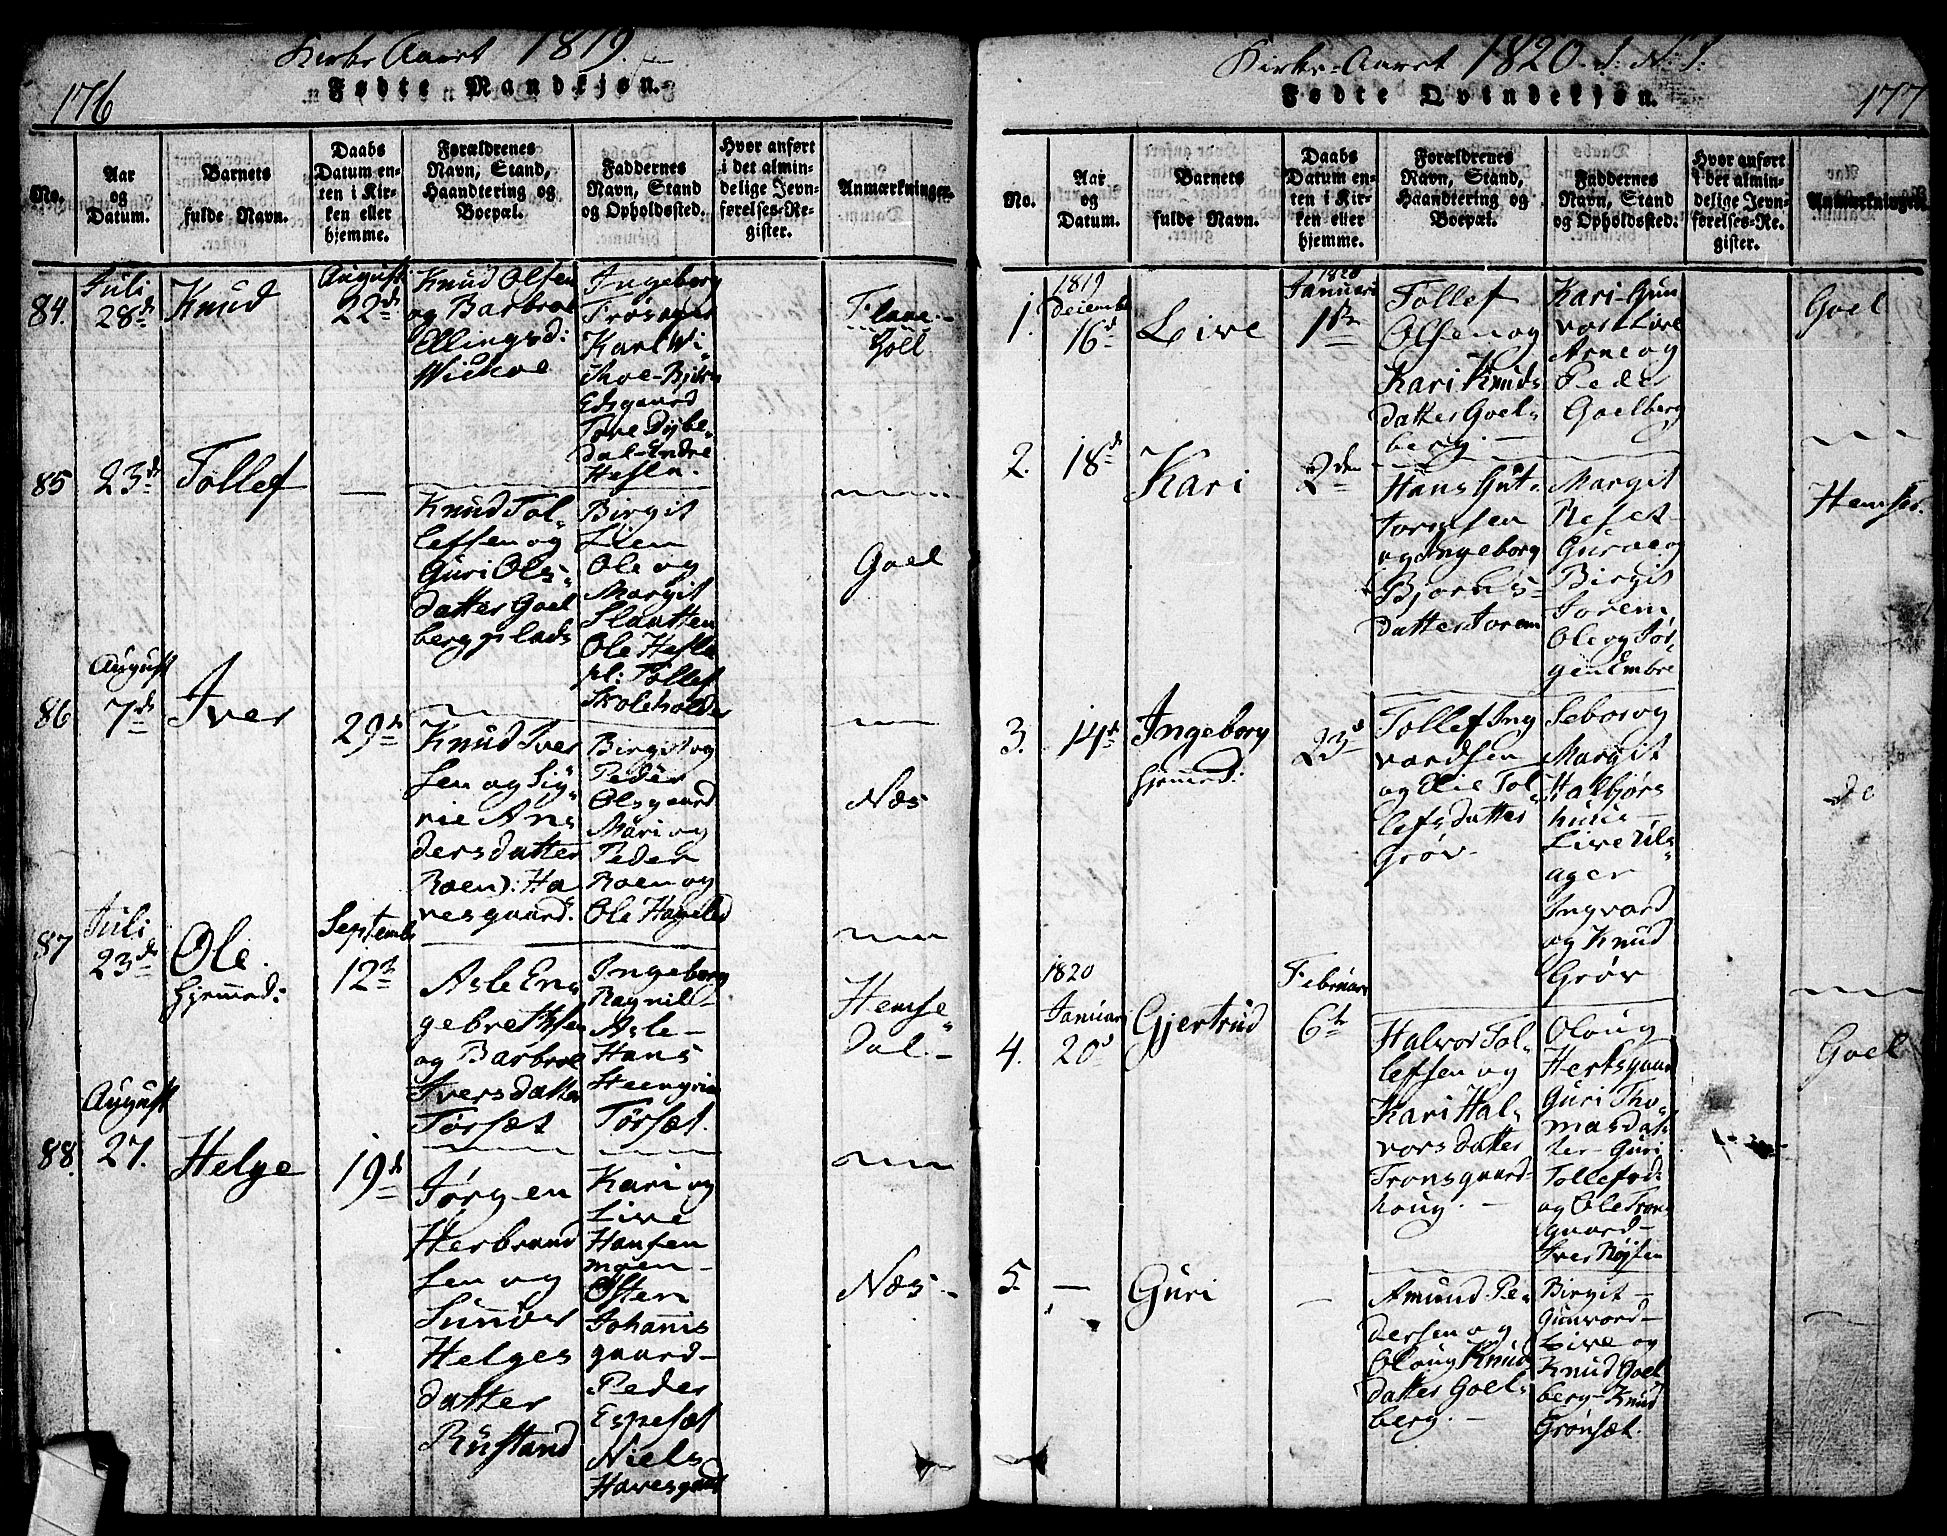 176
Kirke Aaret 1819.
Fødte Mandkjøn.
No.
Aar og Datum.
Barnets fulde Navn.
Daabs Datum enten i Kirken eller hjemme.
Forældrenes Navn, Stand, Haandtering og Boepæl.
Faddernes Navn, Stand og Opholdssted.
Hvor anført i det almindelige Jevnførelses-Register.
Anmærkninger.
84.
Juli
28de
Knud
August
22de
Knud Olsen
og Barbroe
Ellingsd:
Wickoe
Ingeborg
Kari Wi
Edsgaard
Tore Dybe
dal - Endre
Hefla.
Goel
85
23de
Tollef
—
Knud Tol
lefsen og
Guri Ols
datter Goel
berg plads
Birgit
Lien
Ole og
Margit
Slautten
Ole Hefla
pl: Tollef
Skoleholder
Goel
86
August
7de
Iver
29de
Knud Iver
sen og Sig
rie An
dersdatter
Roen): Ha
vesgaard.
Birgit og
Peder
Olsgaard
Mari og
Peder
Roen og
Ole Hagelid
Næs
87
Juli
23de
Ole.
hjemmed:
Septembr
12te
Asle En
gebretsen
og Barbroe
Iversdatter
Torsæt
Ingeborg
Ragnild
Asle -
Hans
Torsæt.
Hemse
dal. -
88.
August
27.
Helge
19de
Jørgen
Herbrand
sen og
Sunder
Helges
datter
Rustand
Kari og
Live
Hansen
moen -
Østen
Johannis
gaard -
Peder
Espesæt
Niels
Havesgaard
Næs -
177
Kirke-Aaret 1820. I. N. I.
Fødte Qvindekjøn.
No.
Aar og Datum.
Barnets fulde Navn.
Daabs Datum enten i Kirken eller hjemme.
Forældrenes Navn, Stand, Haandtering og Boepæl.
Faddernes Navn, Stand og Opholdssted.
Hvor anført i det almindelige Jevnførelses-Register.
Anmærkninger.
1.
1819
Decembr
16d
Live
1820
Januari
1ste
Tollef
Olsen og
Kari Knuds
datter Goel
berg. -
Kari - Gun
vor Live
Arne og
Peder
Goelberg
Goel
2.
18de
Kari
2den
Hans Gut
tormsen
og Ingeborg
Bjorns
datter Torem
Margit
Birgit
Torem
Ole og Jør
gen Embre
Hemsed.
3.
14de
Ingeborg
hjemmed:
23d
Tollef Ing
vardsen
og Elie Tol
lefsdatter
Grøv
Margit
Halbjørs
huus -
Live Uls
ager
Ingvard
og Knud
Grøv
do
4.
1820
Januari
20d
Gjertrud
Februari
6te
Halvor Tol
lefsen og
Kari Hal
vorsdatter
Tronsgaard
houg. -
Oloug
Hertsgaard
Guri Tho
masdat
ter - Guri
Tollefsd:
og Ole Tron
gaard -
Iver Røjsen
Goel
5.
—
Guri
—
Amund Pe
dersen og
Oloug Knud
datter Goel
berg. -
Birgit -
Gunvord -
Live og
Knud Goel
berg - Knud
Grønsæt.